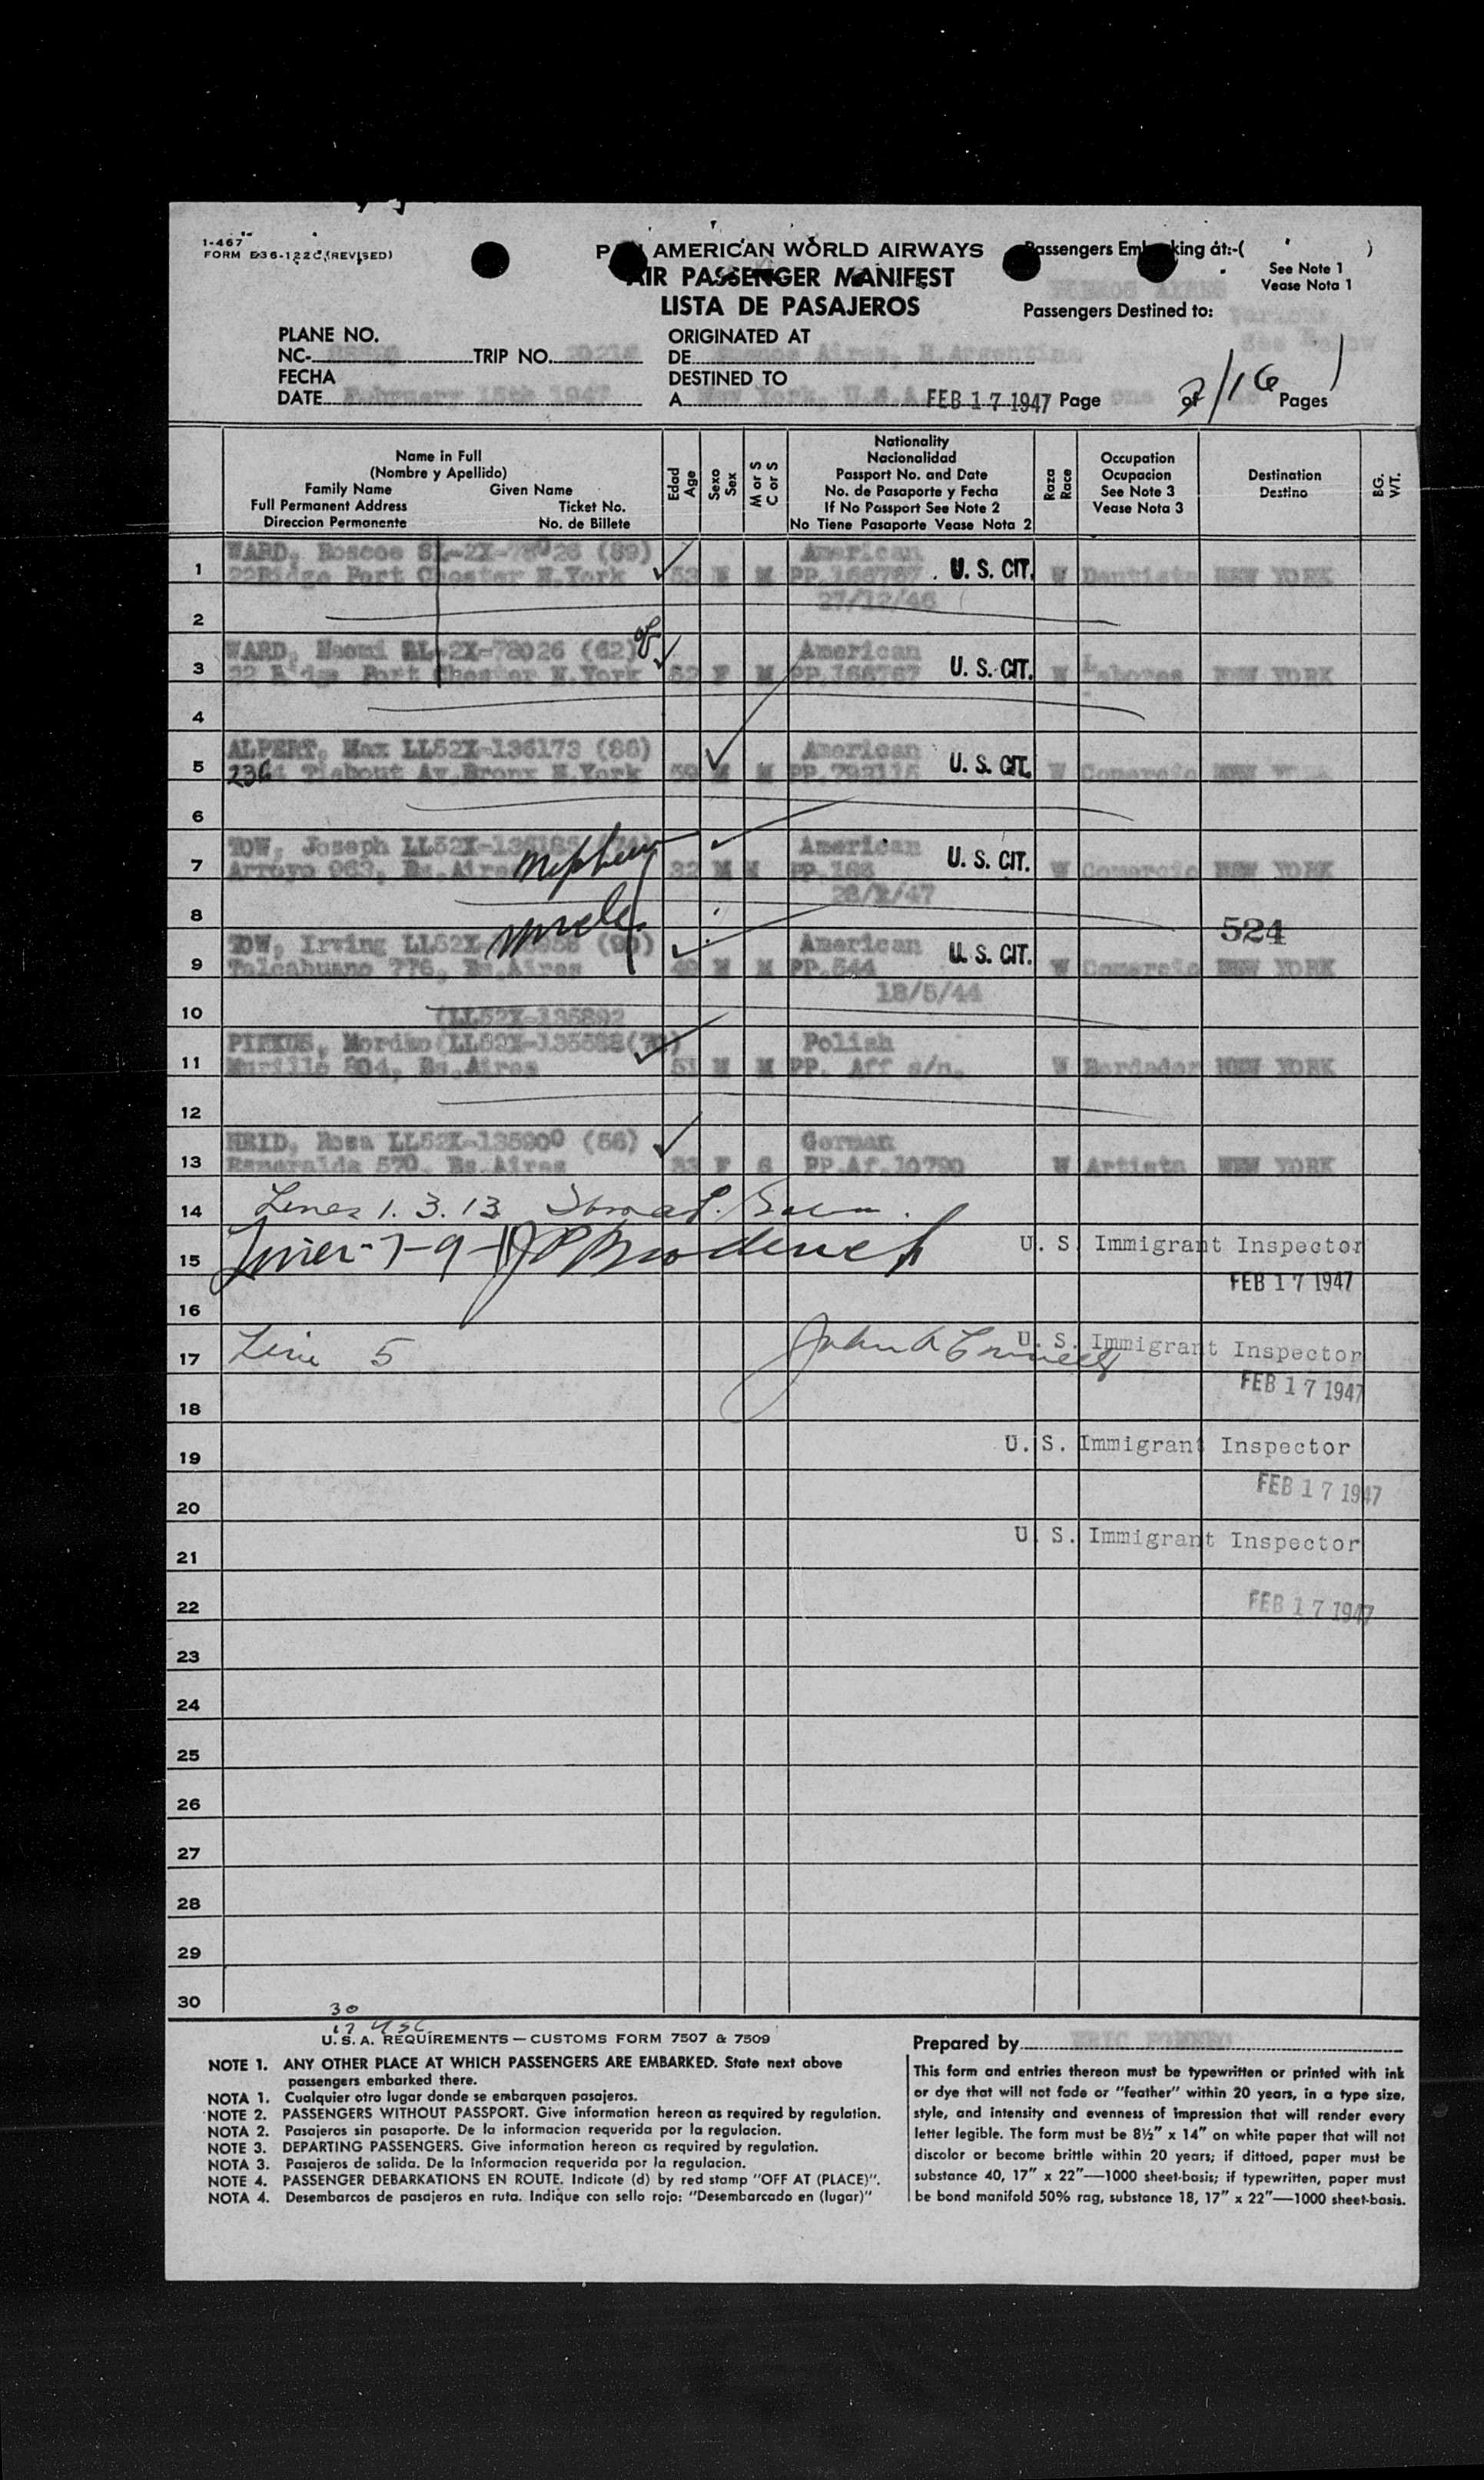 1-467
FORM E36-122C (REVISED)
AMERICAN WORLD AIRWAYS
AIR PASSENGER MANIFEST
LISTA DE PASAJEROS
Passengers Embarking at:-( )
See Note 1
Vease Nota 1
Passengers Destined to: Various
See Below
PLANE NO.
NC- TRIP NO.
ORIGINATED AT
DE Buenos Aires, R.Argentina
FECHA
DATE February 15th 1947
DESTINED TO
A New York, U.S.A. FEB 17 1947 Page one of Pages
2/16
Name in Full
(Nombre y Apellido)
Family Name Given Name
Full Permanent Address Ticket No.
Direccion Permanente No. de Billete
Edad
Age
Sexo
Sex
M or S
C or S
Nationality
Nacionalidad
Passport No. and Date
No. de Pasaporte y Fecha
If No Passport See Note 2
No Tiene Pasaporte Vease Nota 2
Raza
Race
Occupation
Ocupacion
See Note 3
Vease Nota 3
Destination
Destino
BG.
WT.
WARD, Roscoe American
1 Port Chester N.York 53 M M PP.168767 U. S. CIT. W Dentista NEW YORK
27/12/46
2
WARD, Naomi SL-2X-78026 (62) American
3 22 Ridge Port Chester N.York 52 F M PP.168767 U. S. CIT. W Labores NEW YORK
4
ALPERT, Max LL52X-136173 (86) American
5 Tiebout Av.Bronx N.York 59 M M U. S. CIT. W Comercio NEW
6
TOW, Joseph American
7 Arroyo 963, Bs.Aires nephew 32 M M U. S. CIT. W Comercio NEW YORK
8
uncle
524
TOW, Irving American
9 Talcahuano 778, Bs.Aires M M PP.544 U. S. CIT. W Comercio NEW YORK
18/5/44
10
(LL52X-135892
Polish
11 Murillo 804, Bs.Aires 51 M M PP. Aff s/n. W Bordador NEW YORK
12
HEID, Rosa LL52X-135900 (56) German
13 Esmeralda 570, Bs.Aires F S PP.Af.10790 W Artista NEW YORK
14 Lines 1. 3. 13
15 U. S. Immigrant Inspector
FEB 17 1947
16
17 Line 5 U. S. Immigrant Inspector
FEB 17 1947
18
19 U. S. Immigrant Inspector
FEB 17 1947
20
21 U. S. Immigrant Inspector
22 FEB 17 1947
23
24
25
26
27
28
29
30
30
17 USC
U. S. A. REQUIREMENTS — CUSTOMS FORM 7507 & 7509
NOTE 1. ANY OTHER PLACE AT WHICH PASSENGERS ARE EMBARKED. State next above
passengers embarked there.
NOTA 1. Cualquier otro lugar donde se embarquen pasajeros.
NOTE 2. PASSENGERS WITHOUT PASSPORT. Give information hereon as required by regulation.
NOTA 2. Pasajeros sin pasaporte. De la informacion requerida por la regulacion.
NOTE 3. DEPARTING PASSENGERS. Give information hereon as required by regulation.
NOTA 3. Pasajeros de salida. De la informacion requerida por la regulacion.
NOTE 4. PASSENGER DEBARKATIONS EN ROUTE. Indicate (d) by red stamp "OFF AT (PLACE)".
NOTA 4. Desembarcos de pasajeros en ruta. Indique con sello rojo: "Desembarcado en (lugar)"
Prepared by ERIC ROMERO
This form and entries thereon must be typewritten or printed with ink
or dye that will not fade or "feather" within 20 years, in a type size,
style, and intensity and evenness of impression that will render every
letter legible. The form must be 8½" x 14" on white paper that will not
discolor or become brittle within 20 years; if dittoed, paper must be
substance 40, 17" x 22"—1000 sheet-basis; if typewritten, paper must
be bond manifold 50% rag, substance 18, 17" x 22"—1000 sheet-basis.